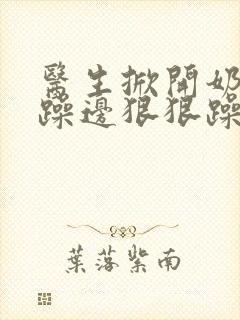 醫生掀開奶
躁邊狠狠躁
葉落紫南